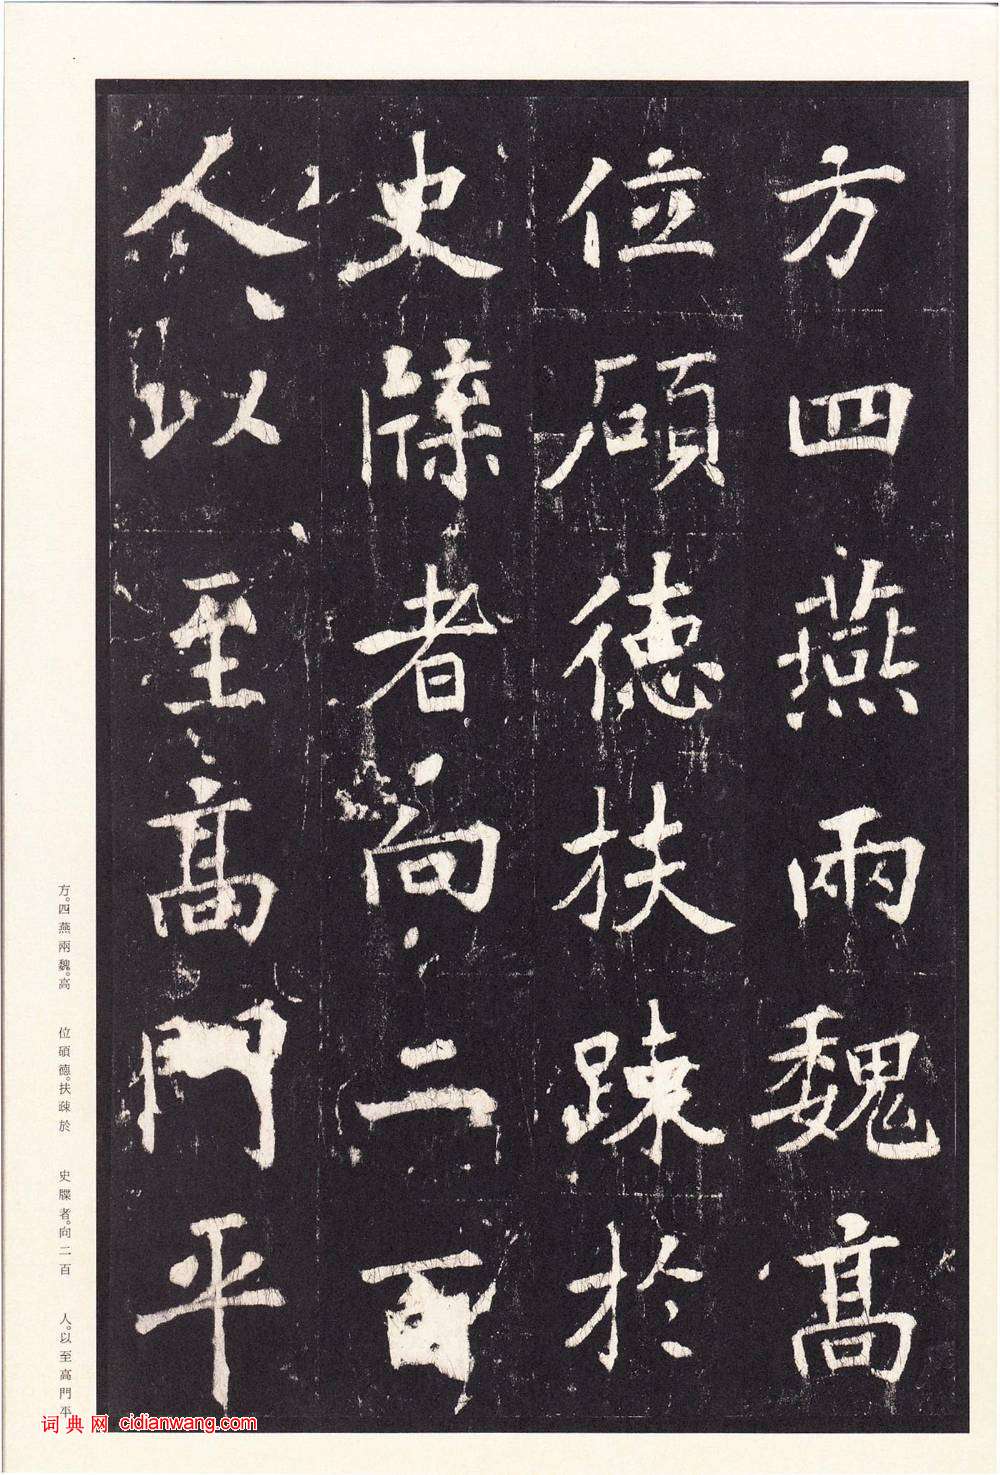 方四燕兩魏高
位碩德扶疎於
史牒者向二百
人以至高門平
方。四燕兩魏。高　位碩德。扶疎於　史牒者。向二百　人。以至高門平
词典网 cidianwang.com